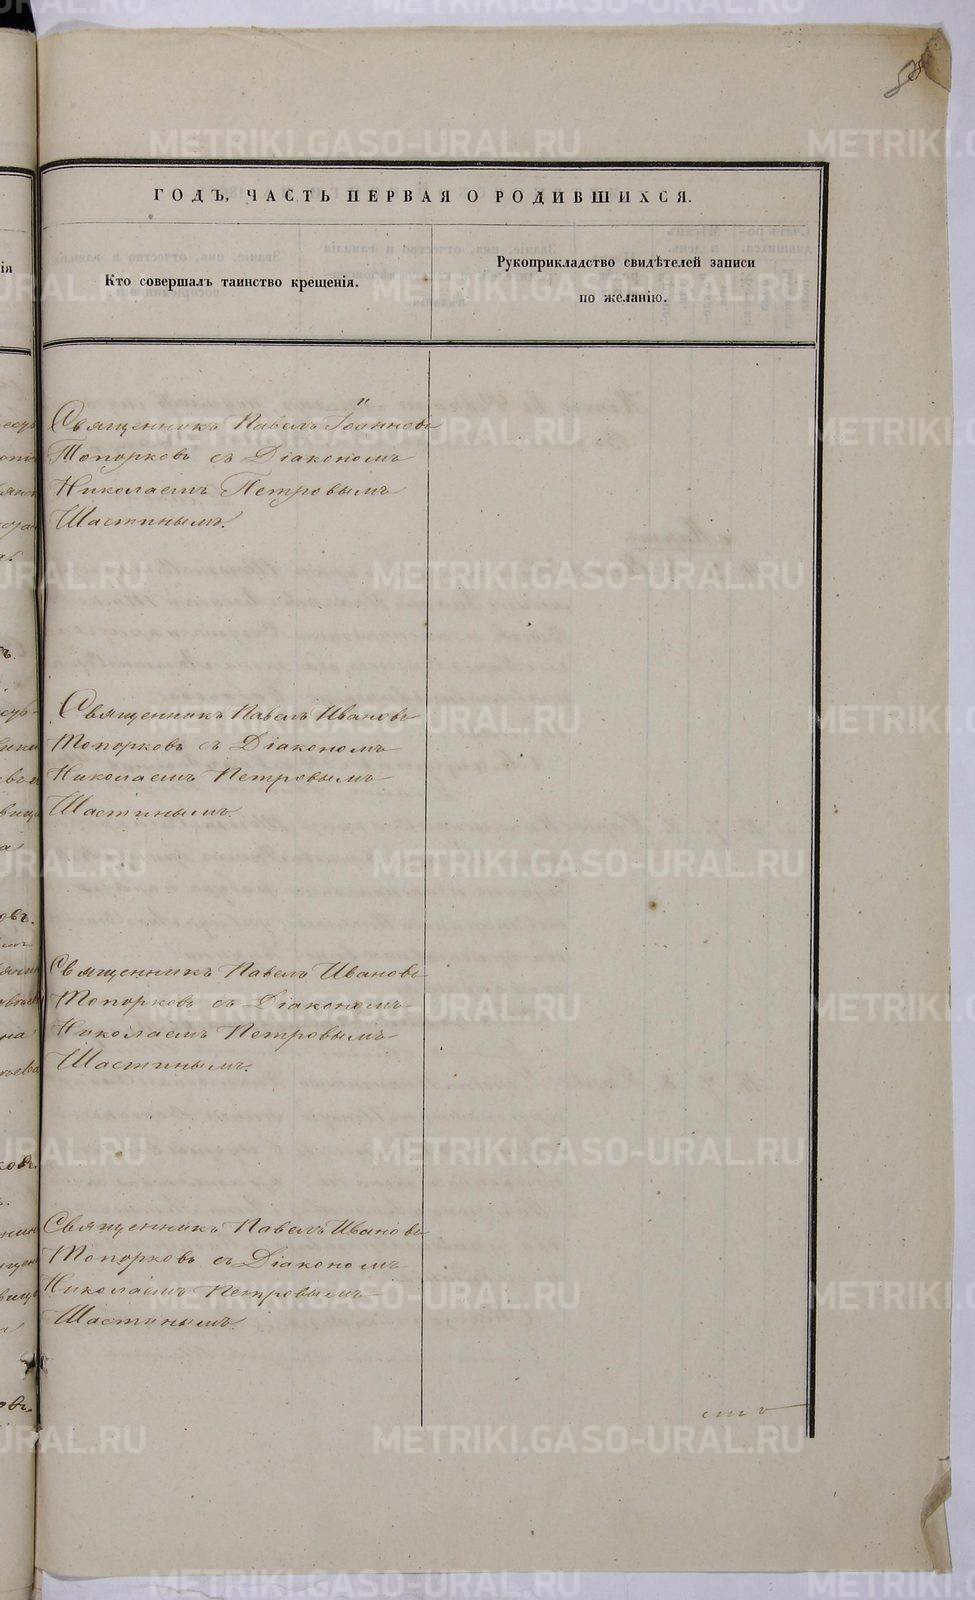 ГОДЪ, ЧАСТЬ ПЕРВАЯ О РОДИВШИХСЯ.
Кто совершалъ таинство крещенія.
Рукоприкладство свидѣтелей записи
по желанію.
Священникъ Павелъ Іоанновъ
Топорковъ съ Діакономъ
Николаемъ Петровымъ
Шастинымъ.
Священникъ Павелъ Ивановъ
Топорковъ съ Діакономъ
Николаемъ Петровымъ
Шастинымъ.
Священникъ Павелъ Ивановъ
Топорковъ съ Діакономъ
Николаемъ Петровымъ
Шастинымъ.
Священникъ Павелъ Ивановъ
Топорковъ съ Діакономъ
Николаемъ Петровымъ
Шастинымъ.
METRIKI.GASO-URAL.RU